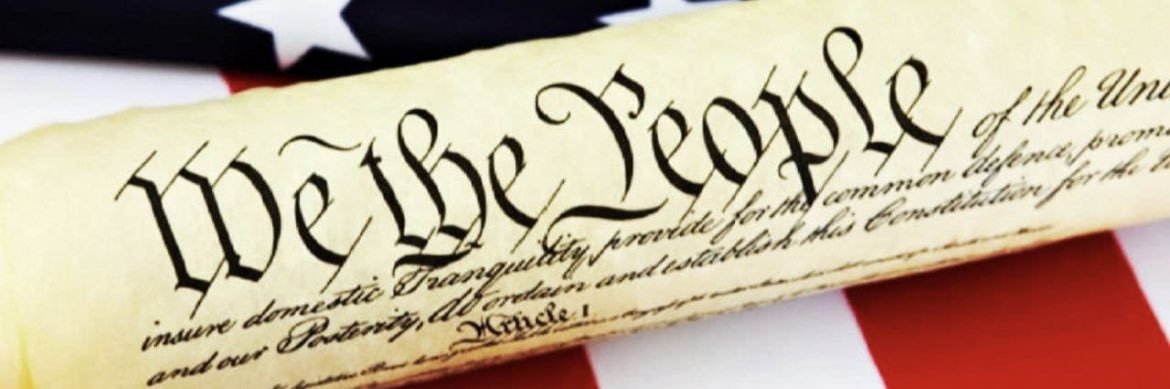 We the People of the Uni
insure domestic Tranquility, provide for the common defence, promo
and our Posterity, do ordain and establish this Constitution for the U
Article I